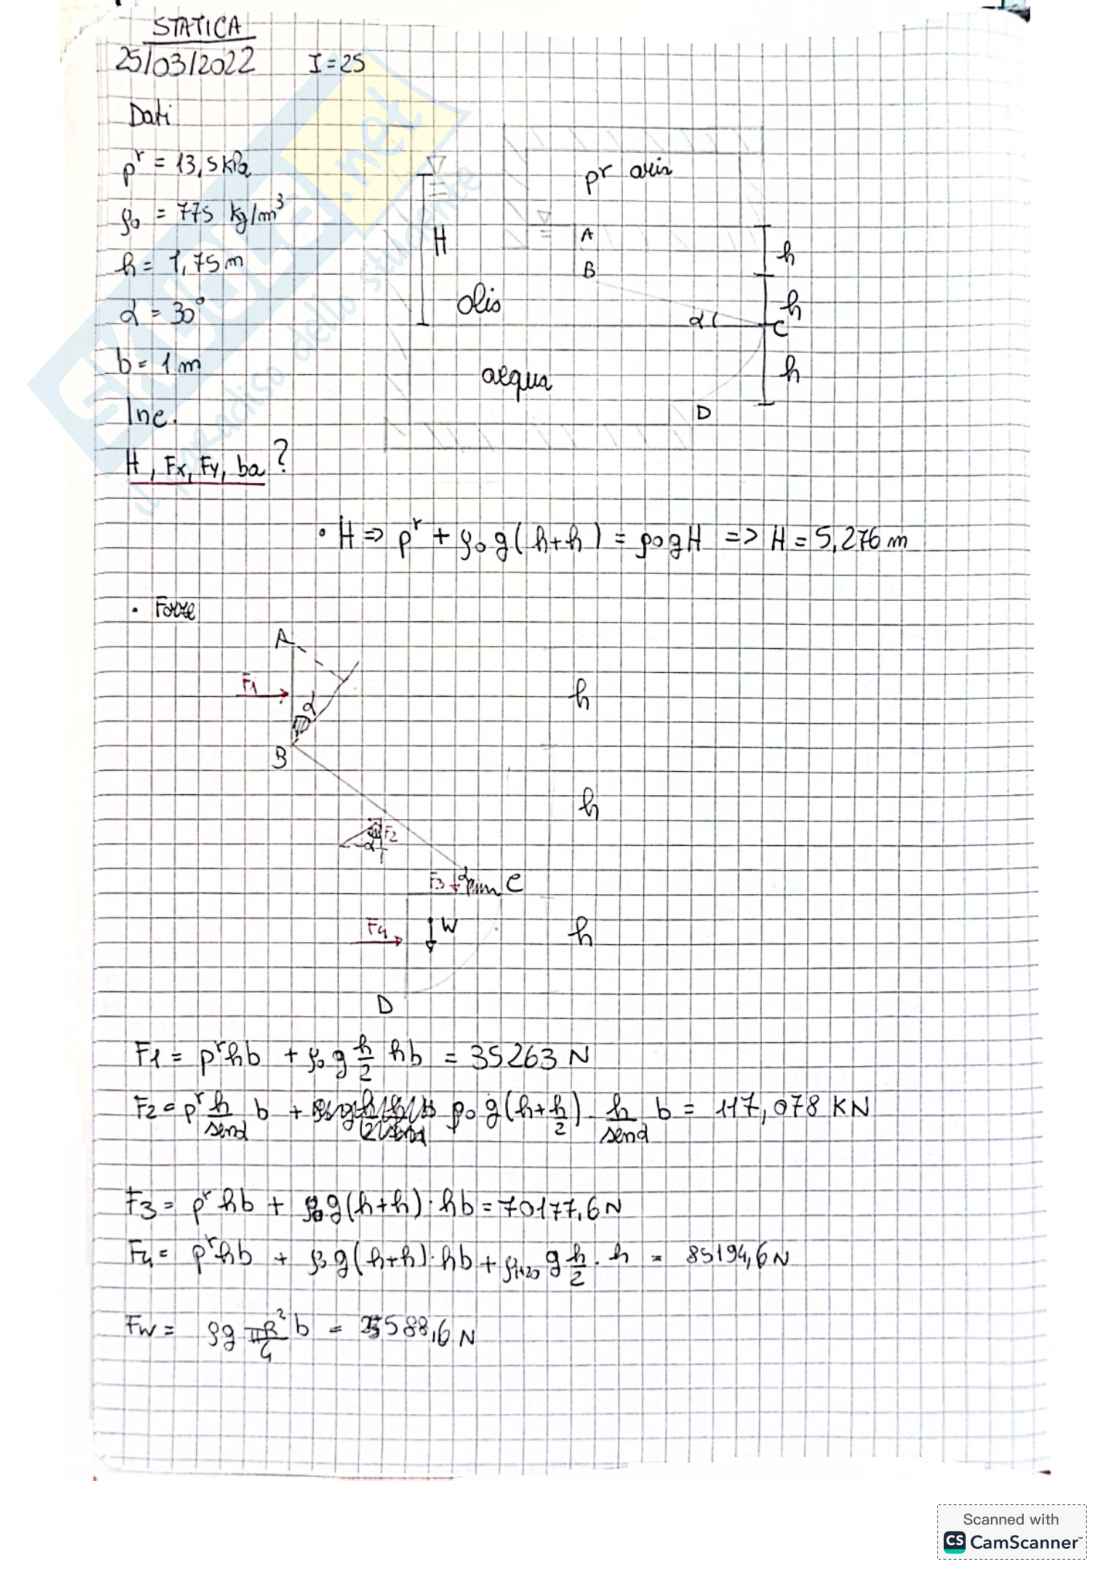 STATICA
25/03/2022 I=25
Dati
pʳ = 13,5 kPa
ρo = 775 kg/m³
h = 1,75 m
α = 30°
b = 1 m
Inc.
H, Fx, Fy, ba ?
pʳ aria
H
A
B
h
olio
α
h
C
acqua
h
D
• H => pʳ + ρo g(h+h) = ρo g H => H = 5,276 m
• Forze
A
F1
α
h
B
h
F2
α
F3
C
F4
W
h
D
F1 = pʳhb + ρo g h/2 hb = 35263 N
F2 = pʳ h/senα b + ρo g(h+h/2) · h/senα b = 117,078 KN
F3 = pʳhb + ρo g(h+h)·hb = 70177,6 N
F4 = pʳhb + ρo g(h+h)·hb + ρH2O g h/2 · h = 85194,6 N
Fw = ρg πR²/4 b = 23588,6 N
Scanned with
CS CamScanner